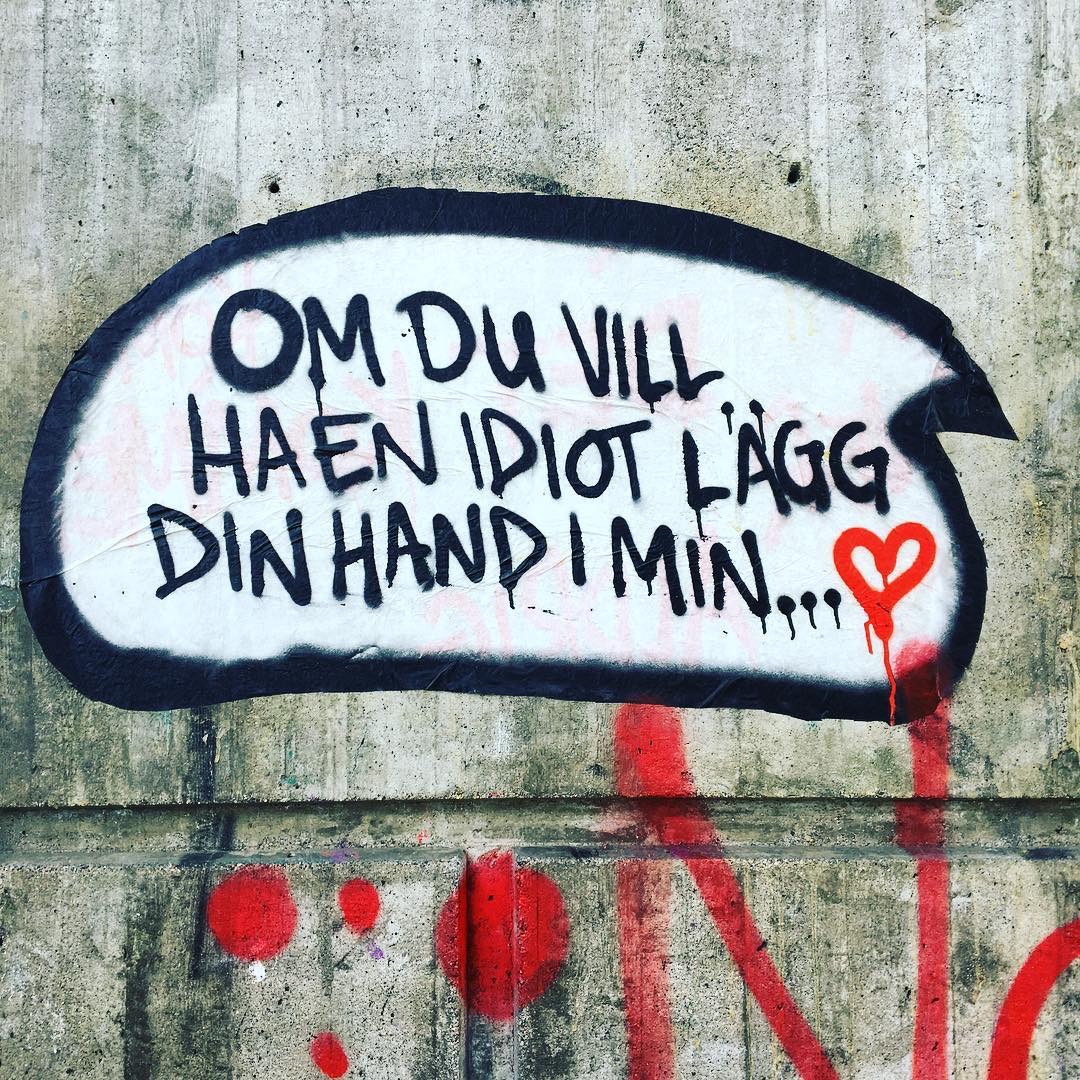 OM DU VILL
HA EN IDIOT LÄGG
DIN HAND I MIN...